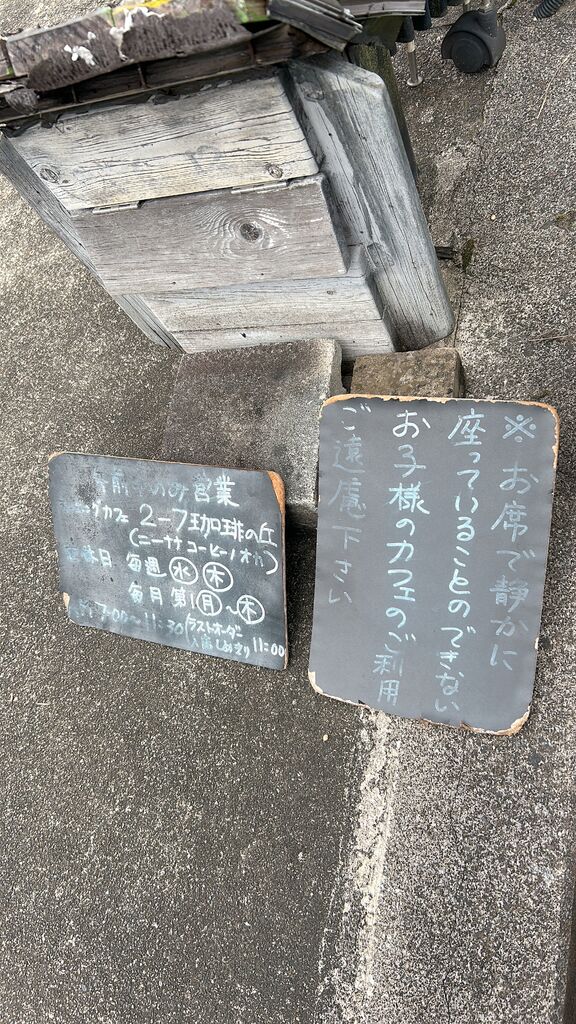 午前中のみ営業
グカフェ 2-7珈琲の丘
(ニーナナ コーヒーノオカ)
定休日 毎週㊌㊍
毎月 第1㊊〜㊍
7:00〜11:30 ラストオーダー
入店しめきり 11:00
※お席で静かに
座っていることのできない
お子様のカフェのご利用
ご遠慮下さい